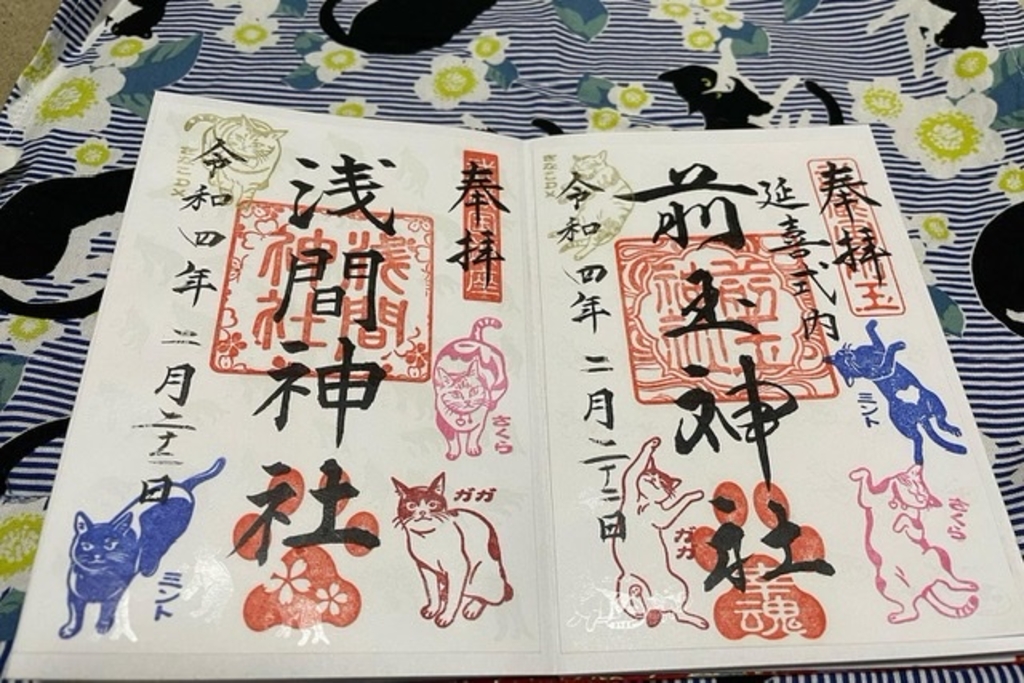 奉拝
延喜式内
前玉神社
令和四年二月二十二日
ミント
さくら
ガガ
幸魂
奉拝
浅間神社
令和四年二月二十二日
さくら
ガガ
ミント
浅間神社